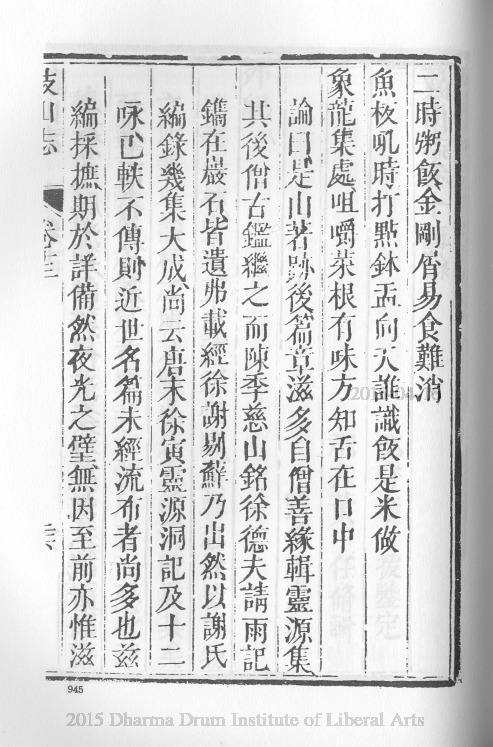 二時粥飯金剛屑易食難消
魚梆吼時打點鉢盂向天誰識飯是米做
象龍集處咀嚼菜根有味方知舌在口中
論曰是山著跡後篇章滋多自僧善緣輯靈源集
其後僧古鑑繼之而陳季慈山銘徐德夫請雨記
鐫在巖石皆遺弗載經徐謝剔蘚乃出然以謝氏
編錄幾集大成尚云唐末徐寅靈源洞記及十二
咏已軼不傳則近世名篇未經流布者尚多也茲
編採摭期於詳備然夜光之璧無因至前亦惟滋
鼓山志
卷十三
945
2015 Dharma Drum Institute of Liberal Arts